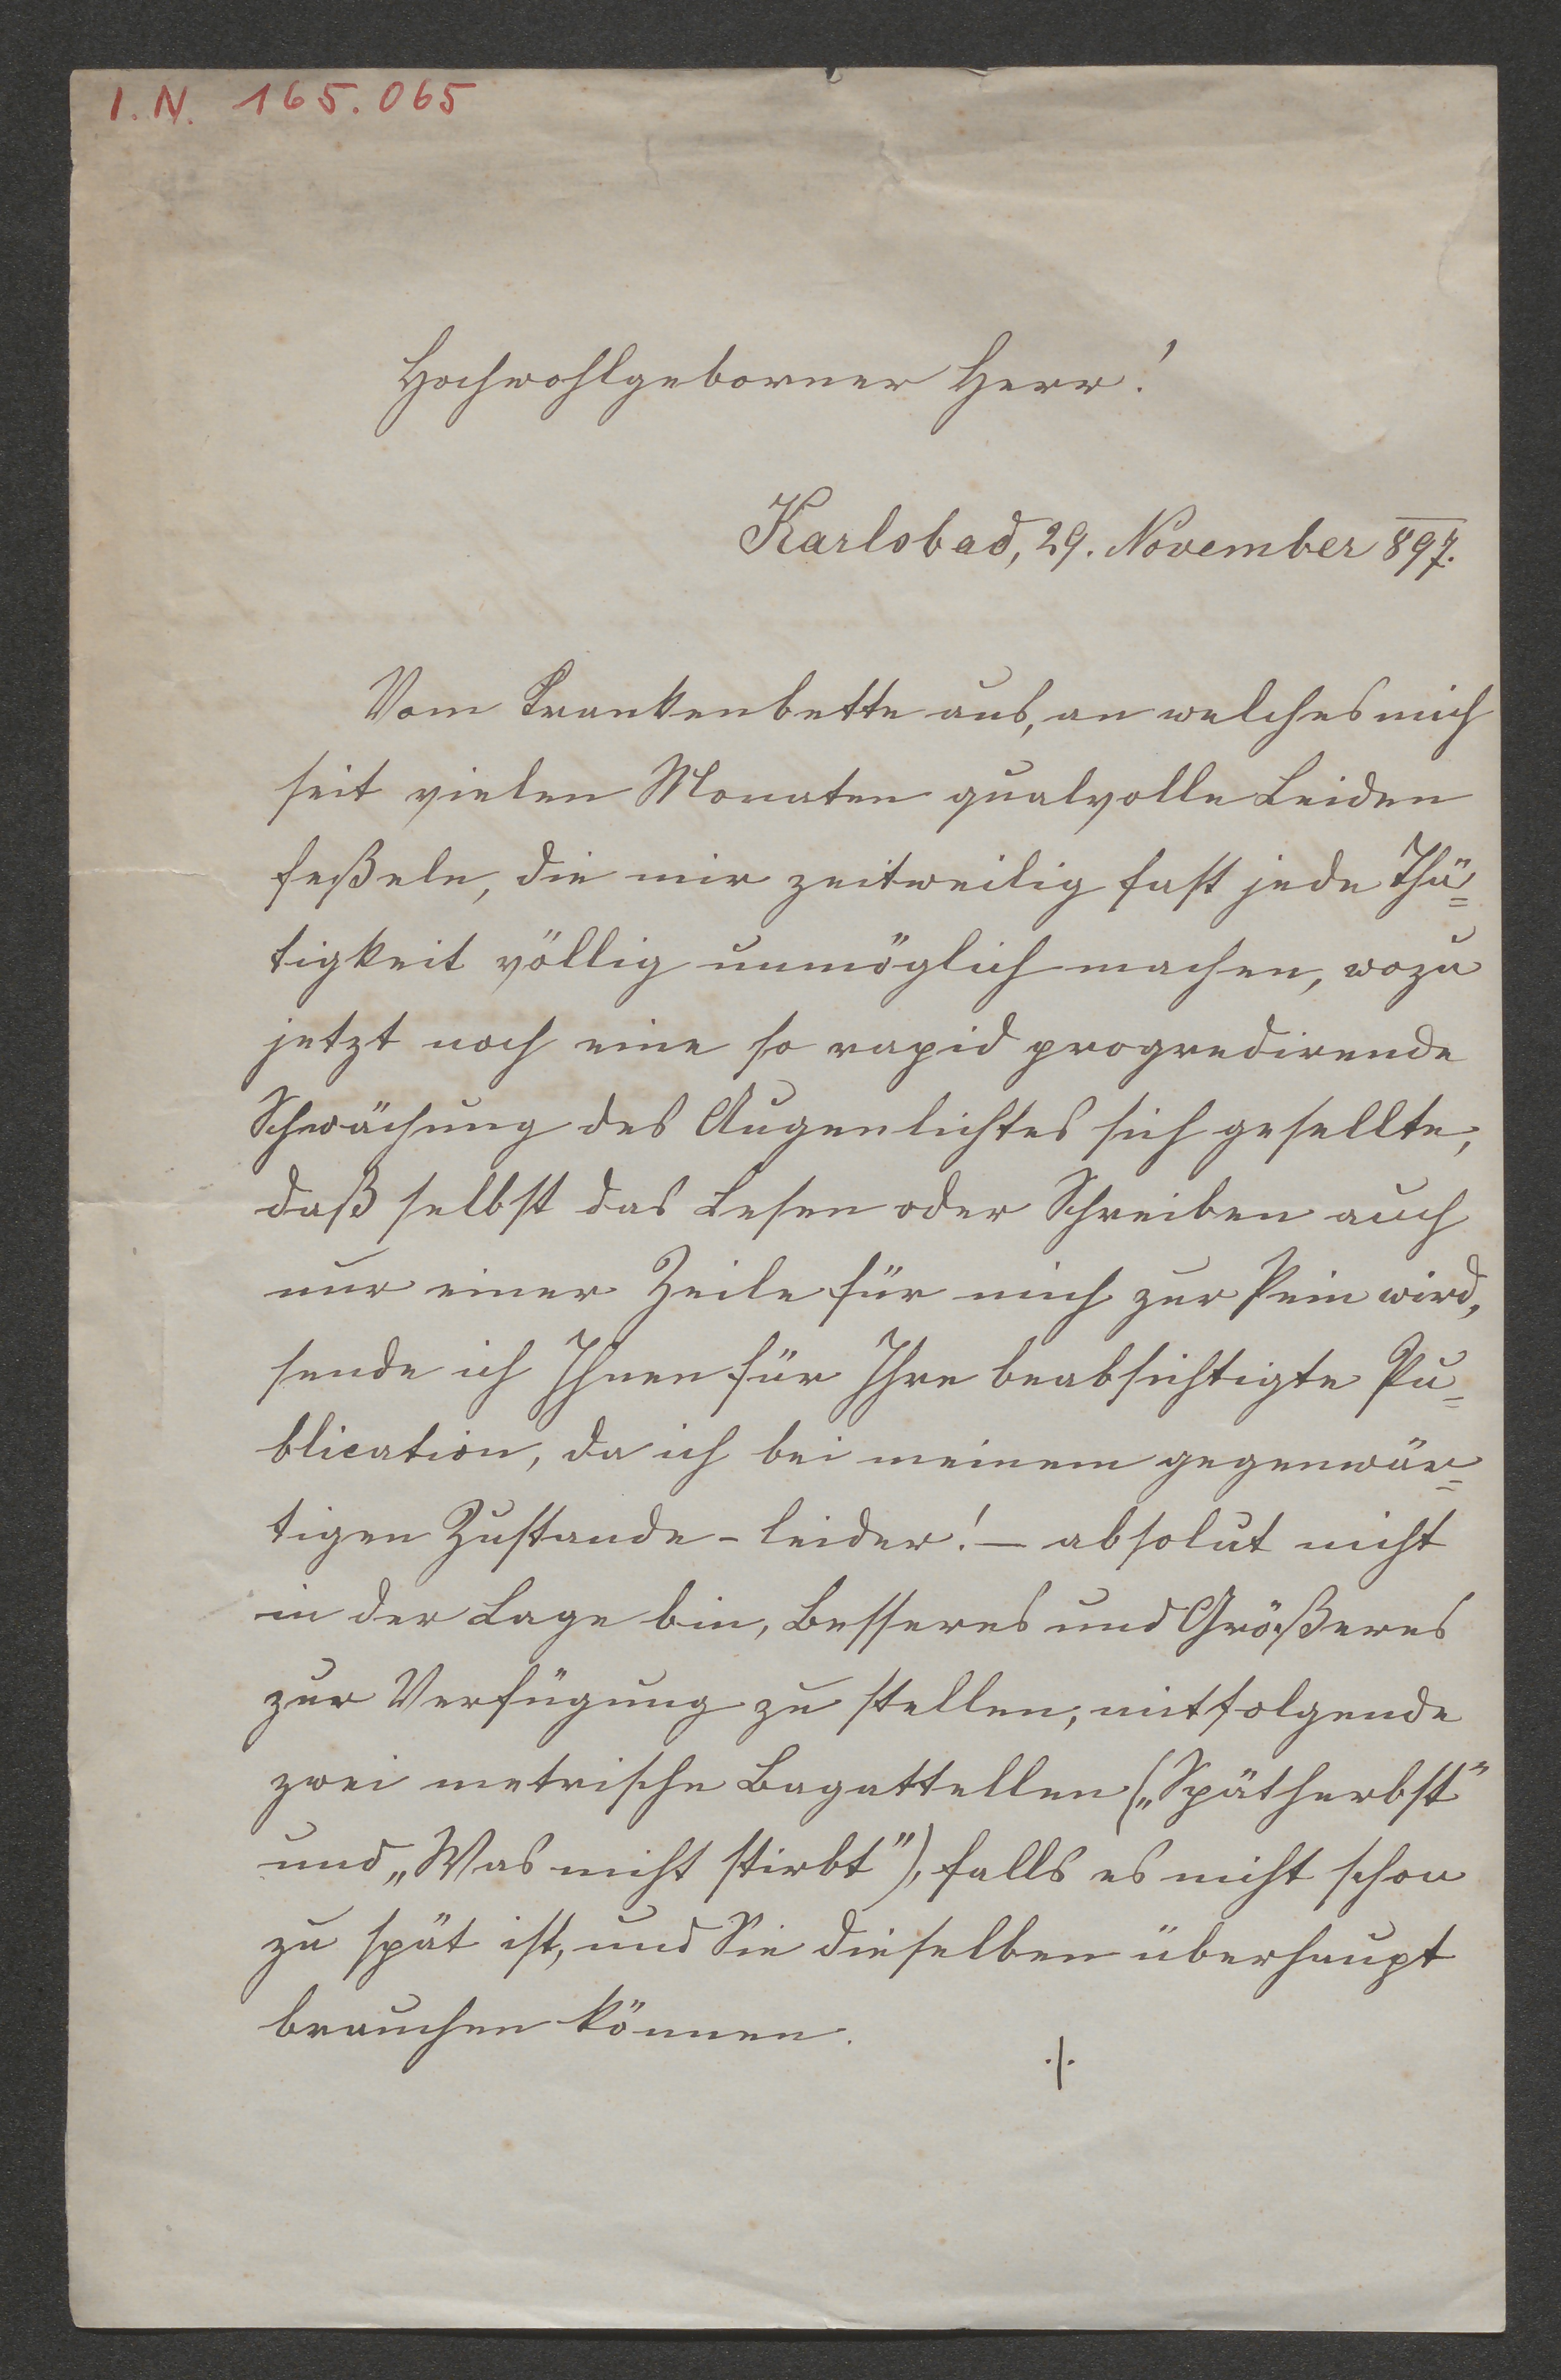 I.N. 165.065
Hochwohlgeborner Herr!
Karlsbad, 29. November 897.
Vom Krankenbette aus, an welches mich
seit vielen Monaten qualvolle Leiden
feßeln, die mir zeitweilig fast jede Thä=
tigkeit völlig unmöglich machen, wozu
jetzt noch eine so rapid progredirende
Schwächung des Augenlichtes sich gesellte,
daß selbst das Lesen oder Schreiben auch
nur einer Zeile für mich zur Pein wird,
sende ich Ihnen für Ihre beabsichtigte Pu=
blication, da ich bei meinem gegenwär=
tigen Zustande – leider! – absolut nicht
in der Lage bin, Besseres und Größeres
zur Verfügung zu stellen, mitfolgende
zwei metrische Bagattellen („Spätherbst"
und „Was nicht stirbt"), falls es nicht schon
zu spät ist, und Sie dieselben überhaupt
brauchen können.
./.